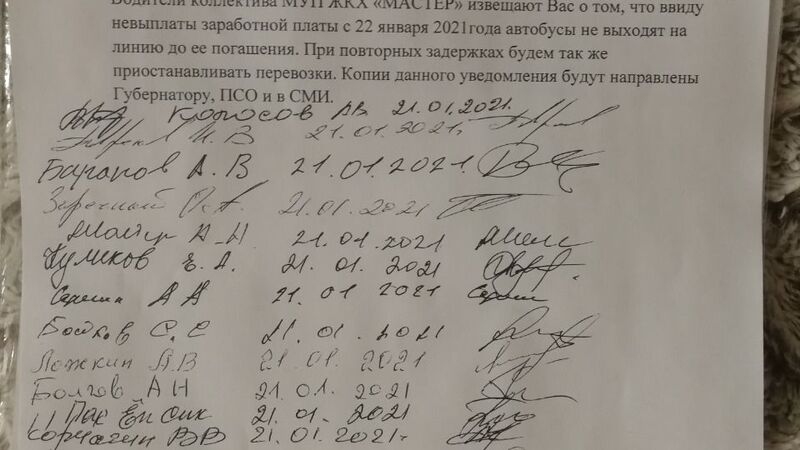 Водители коллектива МУП ЖКХ «МАСТЕР» извещают Вас о том, что ввиду
невыплаты заработной платы с 22 января 2021года автобусы не выходят на
линию до ее погашения. При повторных задержках будем так же
приостанавливать перевозки. Копии данного уведомления будут направлены
Губернатору, ПСО и в СМИ.
Колосов АВ 21.01.2021.
И. В 21.01.2021г
А. В 21.01.2021.
21.01.2021
А.Н. 21.01.2021
Куликов Е. А. 21.01.2021
А А 21.01 2021
С. Е 21.01.2021
Ложкин А.В 21.01.2021
Болгов АН 21.01.2021
Пак Ен Сик 21.01.2021
Корчагин ВВ 21.01.2021г